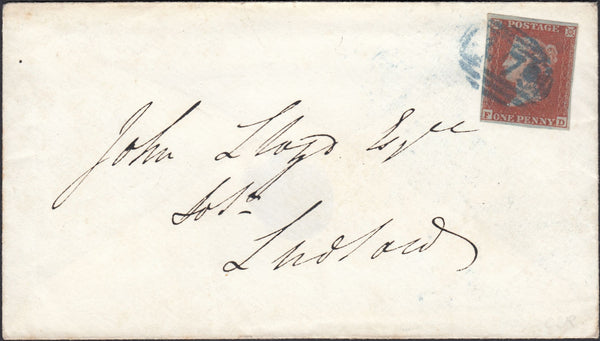 POSTAGE
ONE PENNY
F D
John Lloyd Esqre
Solr
Ludlow